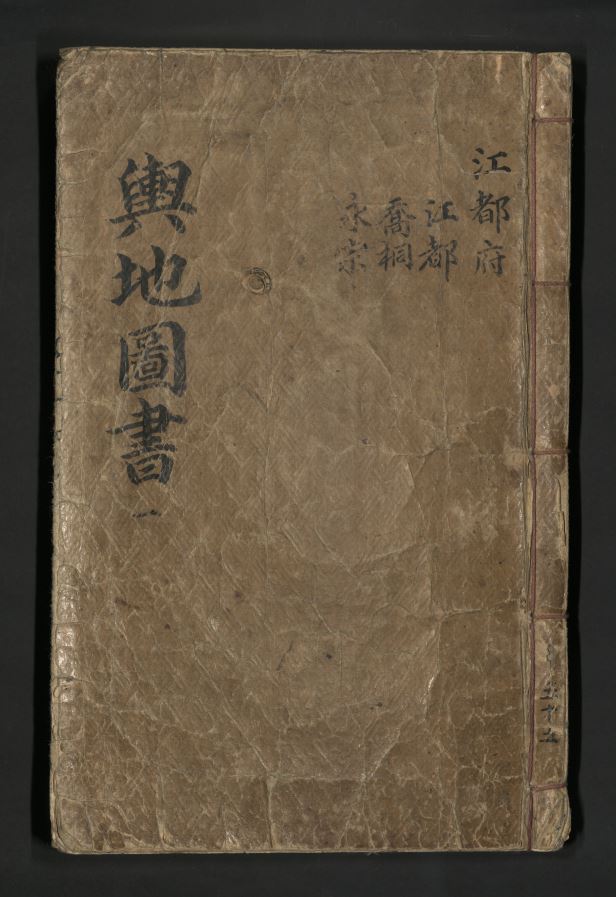 江都府
江都
喬桐
永宗
輿地圖書 一
共五十五